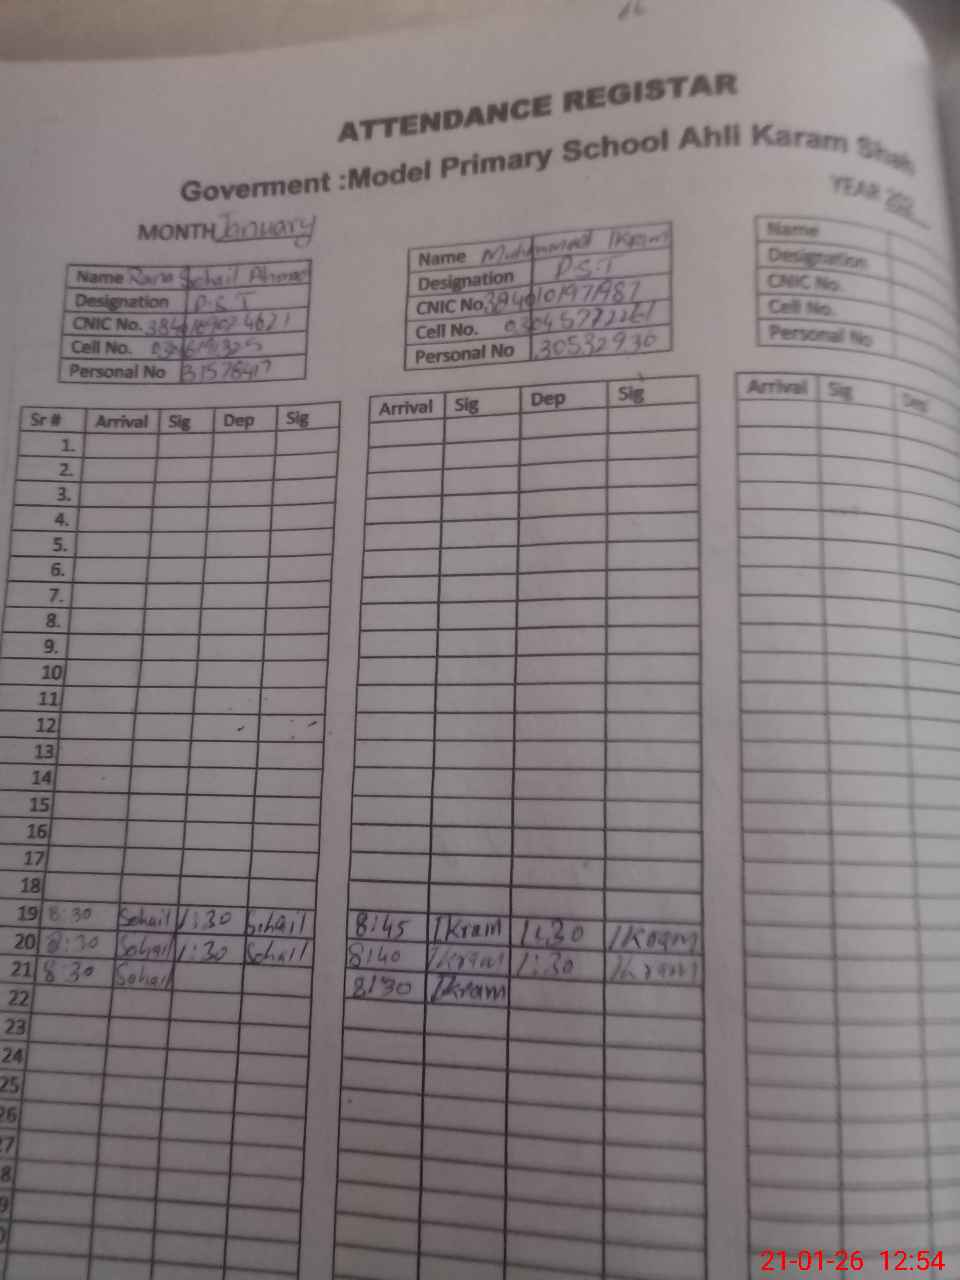 ATTENDANCE REGISTAR
Goverment :Model Primary School Ahli Karam Shah
YEAR 202
MONTH January
Name Rana Sohail Ahmad
Designation P.S.T
CNIC No.
Cell No.
Personal No
Name Muhammad Ikram
Designation P.S.T
CNIC No.
Cell No.
Personal No 30532930
Name
Designation
CNIC No.
Cell No.
Personal No
Sr # Arrival Sig Dep Sig Arrival Sig Dep Sig Arrival Sig Dep
1.
2.
3.
4.
5.
6.
7.
8.
9.
10
11
12
13
14
15
16
17
18
19 8:30 Sohail 1:30 Sohail 8:45 Ikram 1:30 Ikram
20 8:30 Sohail 1:30 Sohail 8:40 Ikram 1:30 Ikram
21 8:30 Sohail 8:30 Ikram
22
23
24
25
26
27
8
9
21-01-26 12:54